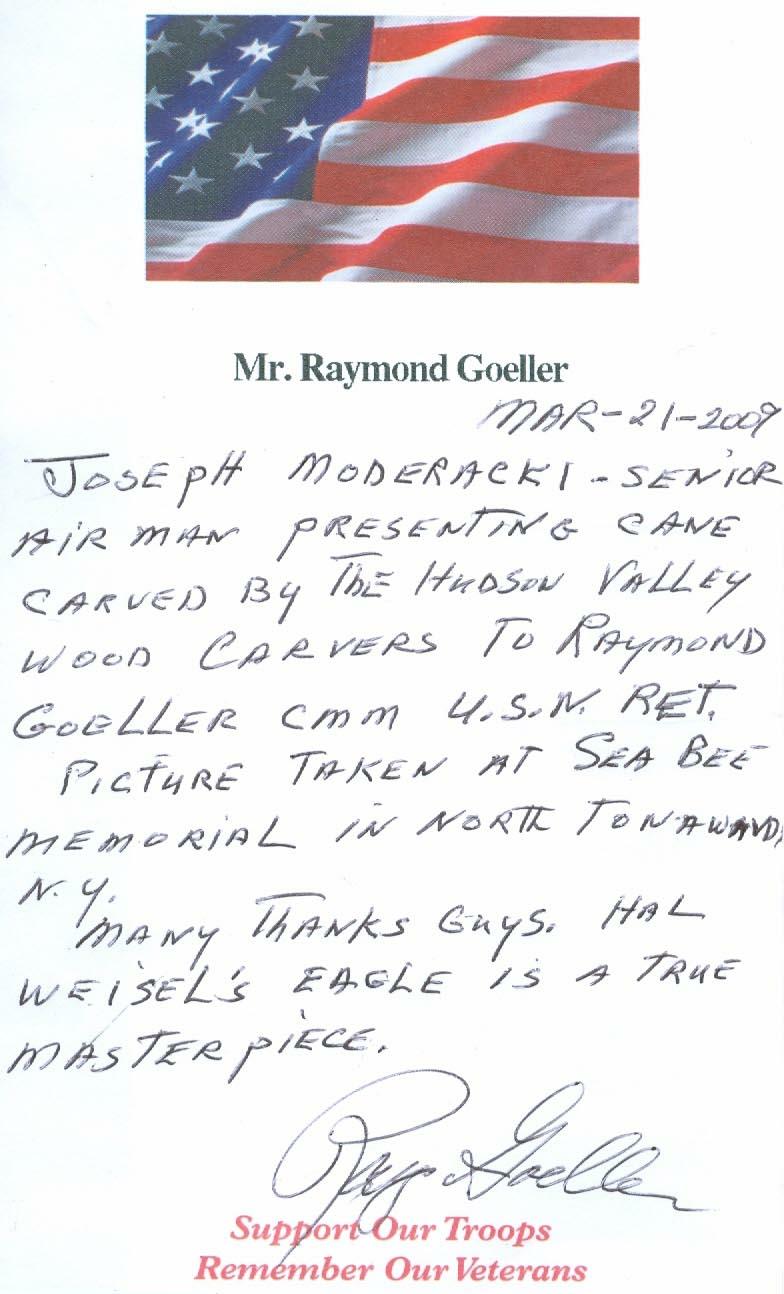 Mr. Raymond Goeller
MAR-21-2009
JOSEPH MODERACKI - SENIOR
AIR MAN PRESENTING CANE
CARVED BY THE HUDSON VALLEY
WOOD CARVERS TO RAYMOND
GOELLER CMM U.S.N. RET.
PICTURE TAKEN AT SEA BEE
MEMORIAL IN NORTH TONAWAND
N.Y.
MANY THANKS GUYS. HAL
WEISEL'S EAGLE IS A TRUE
MASTERPIECE.
Ray Goeller
Support Our Troops
Remember Our Veterans